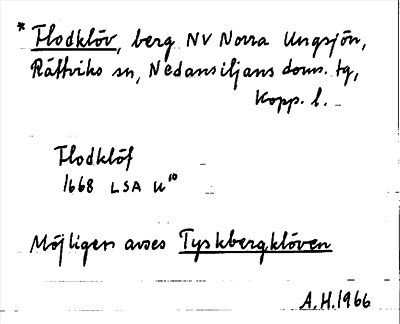 * Flodklöv, berg NV Norra Ungsjön,
Rättviks sn, Nedansiljans doms. tg,
Kopp. l.
Flodklöf
1668 LSA U10
Möjligen avses Tyskbergklöven
A.H. 1966